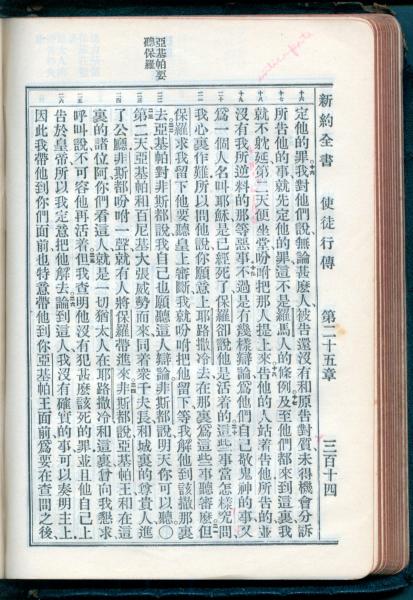 新約全書 使徒行傳 第二十五章 三百十四
定他的罪我對他們說無論甚麼人被告還沒有和原告對質未得機會分訴
所告他的事就先定他的罪這不是羅馬人的條例及至他們都來到這裏我
就不躭延第二天便坐堂吩咐把那人提上來告他的人站着告他所告的並
沒有我所逆料的那等惡事不過是有幾樣辯論爲他們自己敬鬼神的事又
爲一個人名叫耶穌是已經死了保羅卻說他是活着的這些事當怎樣究問
我心裏作難所以問他說你願意上耶路撒冷去在那裏爲這些事聽審麼但
保羅求我留下他要聽皇上審斷我就吩咐把他留下等我解他到該撒那裏
去亞基帕對非斯都說我自己也願聽這人辯論非斯都說明天你可以聽〇
第二天亞基帕和百尼基大張威勢而來同着衆千夫長和城裏的尊貴人進
了公廳非斯都吩咐一聲就有人將保羅帶進來非斯都說亞基帕王和在這
裏的諸位阿你們看這人就是一切猶太人在耶路撒冷和這裏曾向我懇求
呼叫說不可容他再活着但我查明他沒有犯甚麼該死的罪並且他自己上
告於皇帝所以我定意把他解去論到這人我沒有確實的事可以奏明主上
因此我帶他到你們面前也特意帶他到你亞基帕王面前爲要在查問之後
亞基帕要
聽保羅